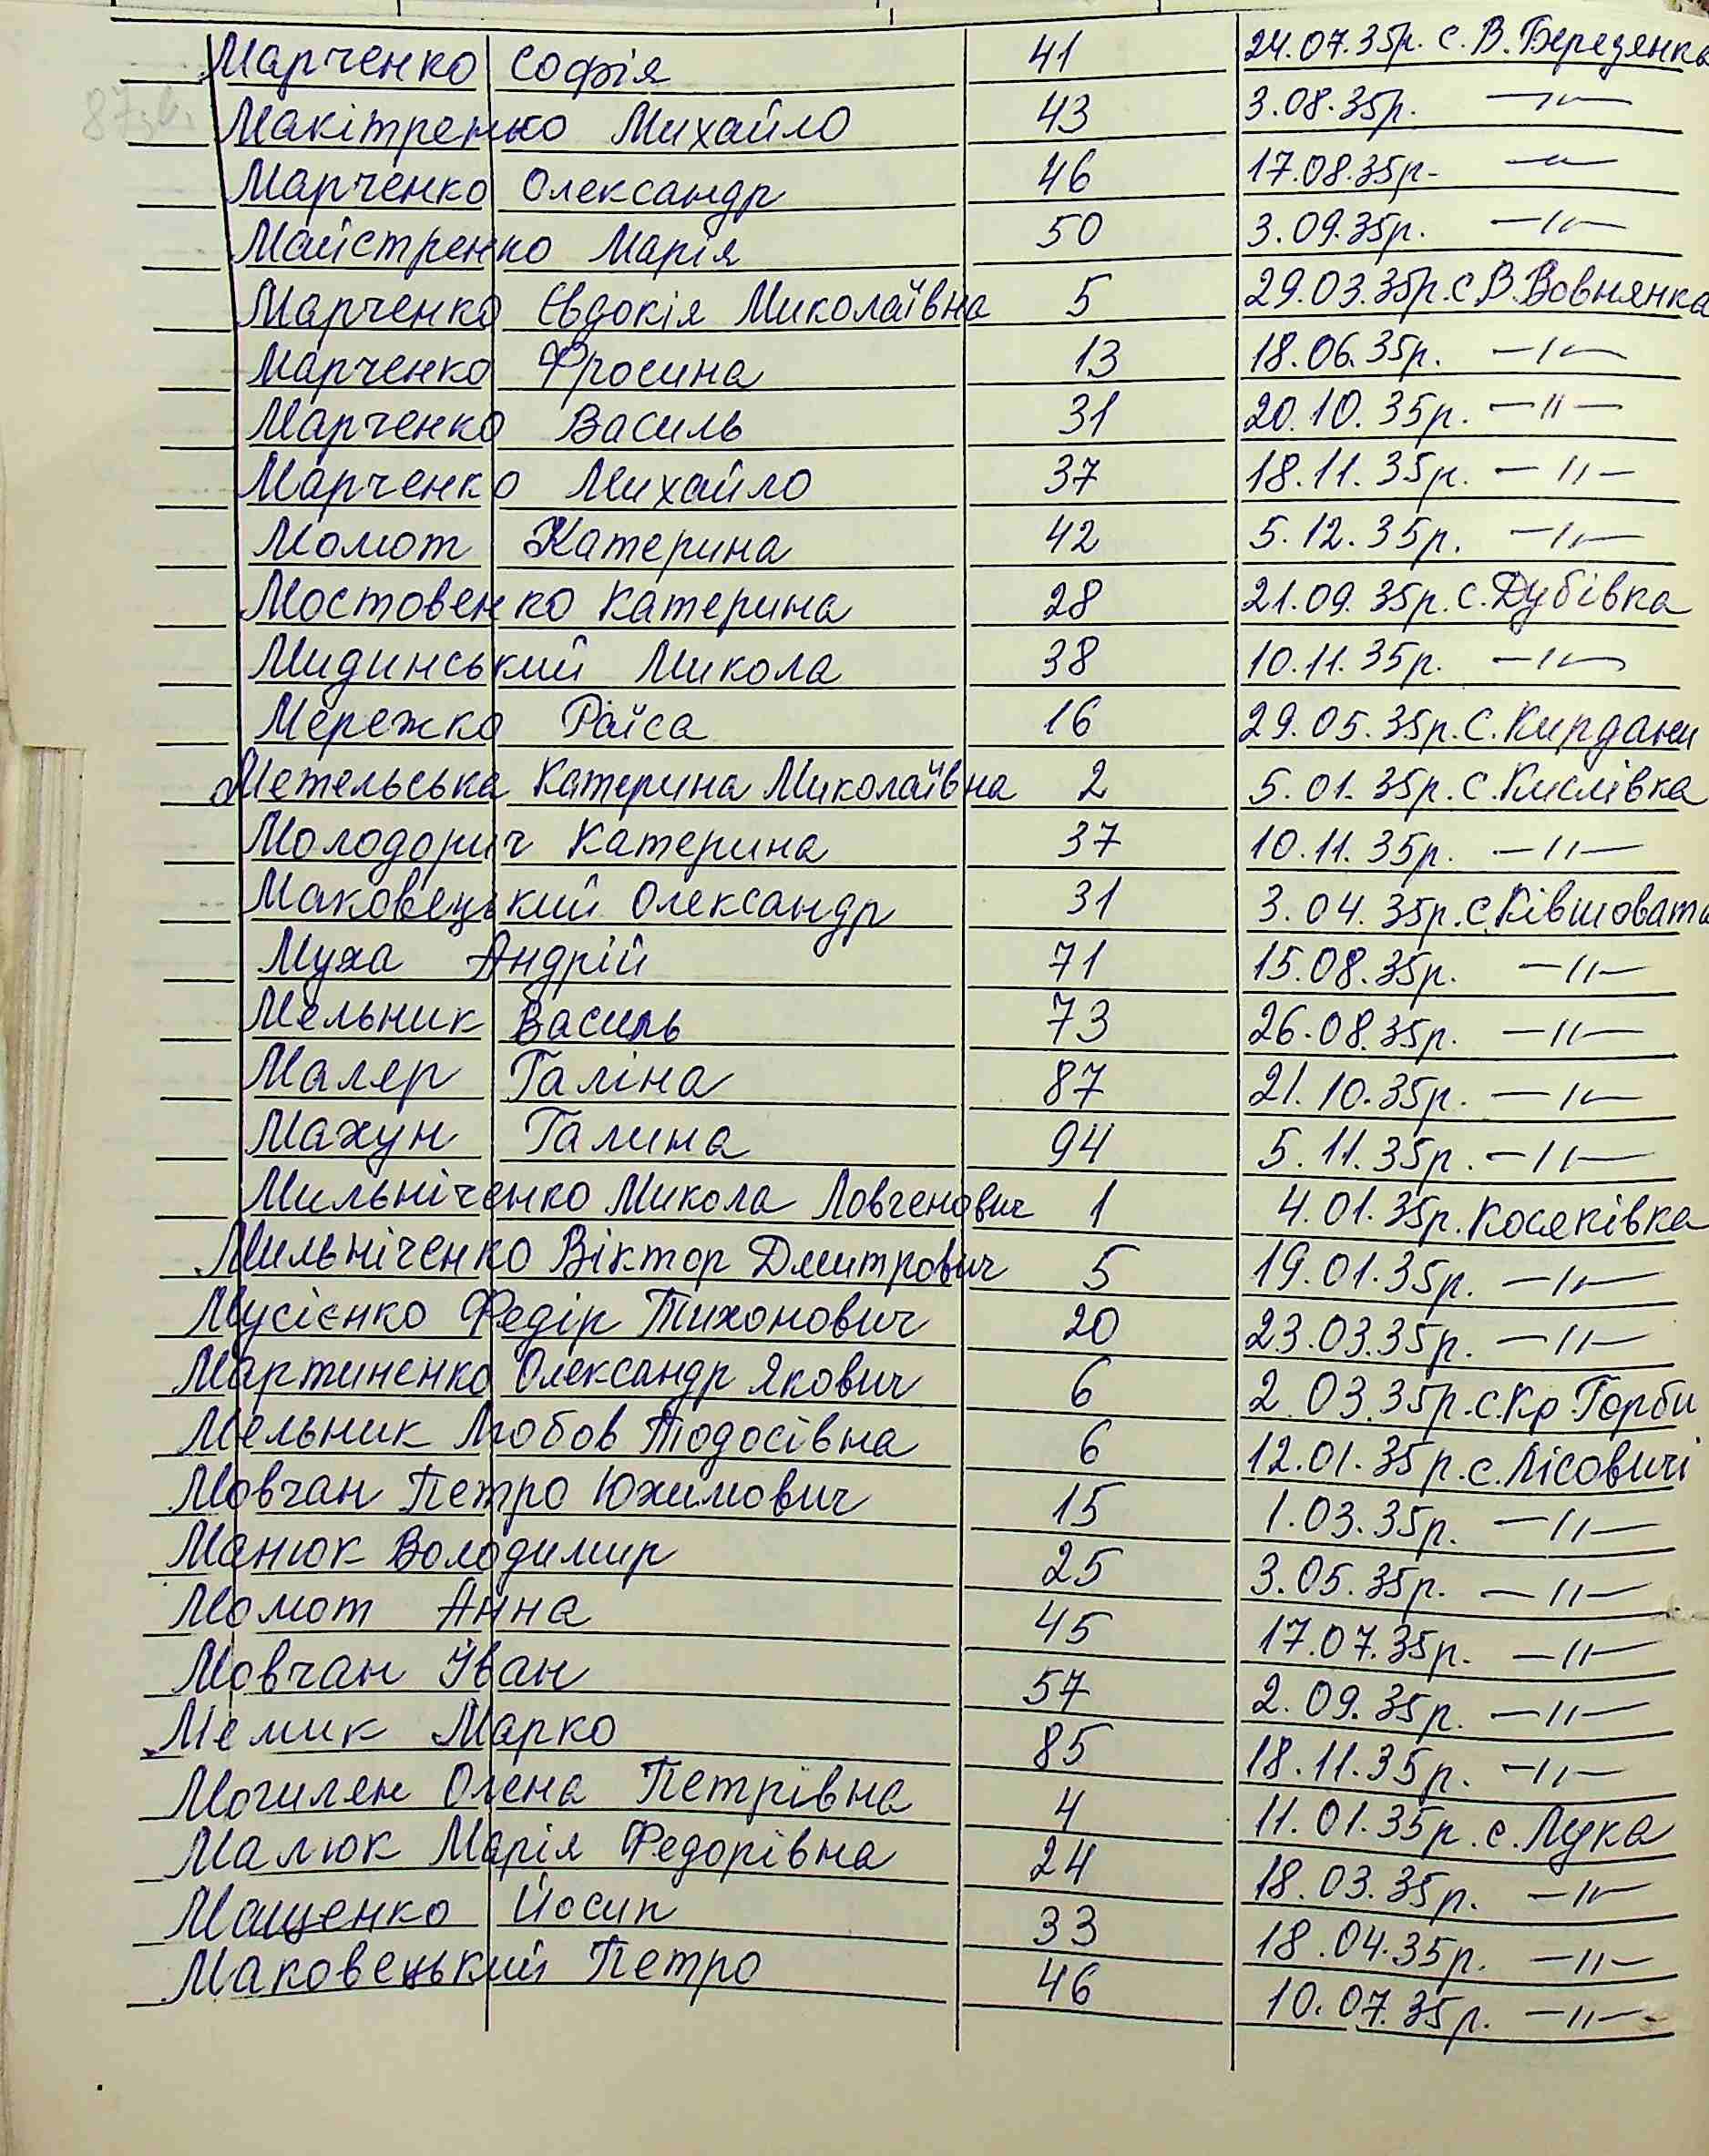 Марченко Софія 41 24.07.35р. с. В. Березянка
Макітренко Михайло 43 3.08.35р. —"—
Марченко Олександр 46 17.08.35р. —"—
Майстренко Марія 50 3.09.35р. —"—
Марченко Євдокія Миколаївна 5 29.03.35р. с В. Вовнянка
Марченко Фросина 13 18.06.35р. —"—
Марченко Василь 31 20.10.35р. —"—
Марченко Михайло 37 18.11.35р. —"—
Момот Катерина 42 5.12.35р. —"—
Мостовенко Катерина 28 21.09.35р. с. Дубівка
Мидинський Микола 38 10.11.35р. —"—
Мережко Раїса 16 29.05.35р. с. Кирдани
Метельська Катерина Миколаївна 2 5.01.35р. с. Кислівка
Молодорич Катерина 37 10.11.35р. —"—
Маковецький Олександр 31 3.04.35р. с. Ківшовата
Муха Андрій 71 15.08.35р. —"—
Мельник Василь 73 26.08.35р. —"—
Маляр Галіна 87 21.10.35р. —"—
Махун Галина 94 5.11.35р. —"—
Мильніченко Микола Ловгенович 1 4.01.35р. Косяківка
Мильніченко Віктор Дмитрович 5 19.01.35р. —"—
Мусієнко Федір Тихонович 20 23.03.35р. —"—
Мартиненко Олександр Якович 6 2.03.35р. с. Кр Горби
Мельник Любов Тодосівна 6 12.01.35р. с. Лісовичі
Мовчан Петро Юхимович 15 1.03.35р. —"—
Манюк Володимир 25 3.05.35р. —"—
Момот Анна 45 17.07.35р. —"—
Мовчан Іван 57 2.09.35р. —"—
Мемик Марко 85 18.11.35р. —"—
Могилен Олена Петрівна 4 11.01.35р. с. Лука
Малюк Марія Федорівна 24 18.03.35р. —"—
Мащенко Йосип 33 18.04.35р. —"—
Маковецький Петро 46 10.07.35р. —"—